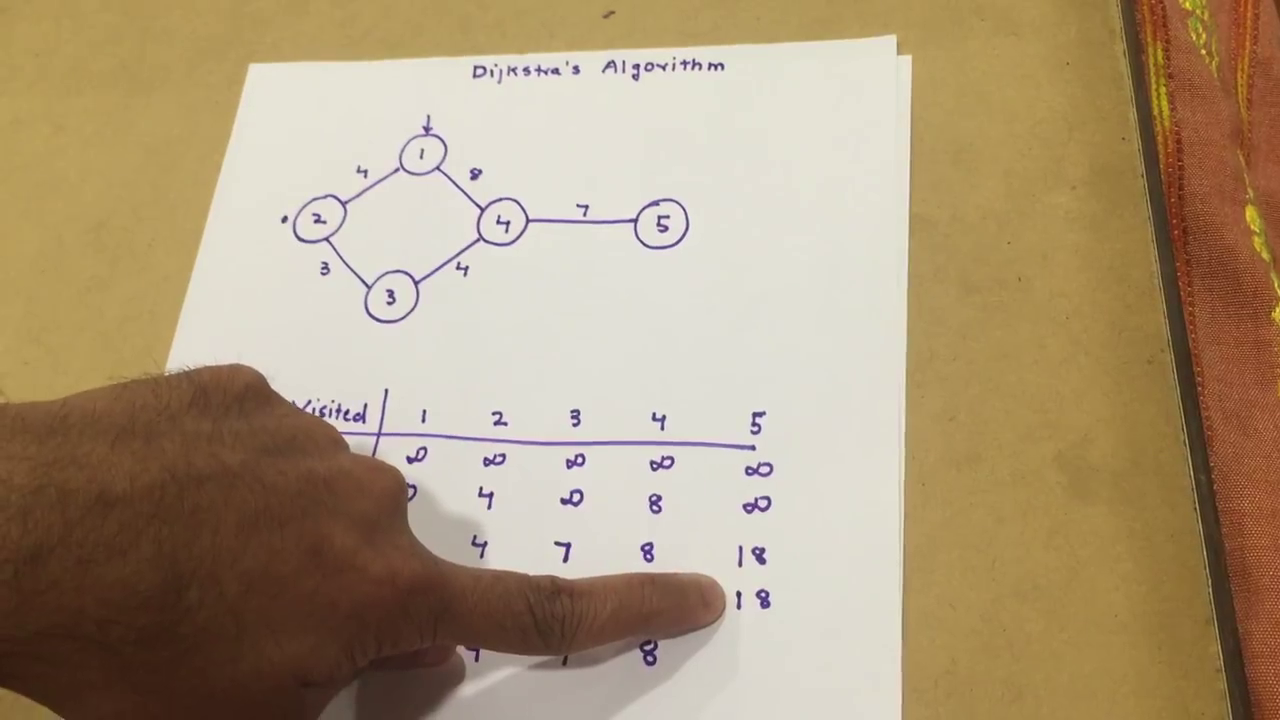 Dijkstra's Algorithm
1
4 8
2 4 7 5
3 4
3
Visited 1 2 3 4 5
∞ ∞ ∞ ∞ ∞
4 ∞ 8 ∞
4 7 8 18
18
8